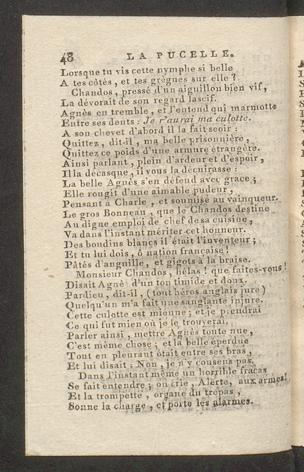 48 LA PUCELLE.
Lorsque tu vis cette nymphe si belle
A tes côtés, et tes grègues sur elle ?
Chandos, pressé d'un aiguillon bien vif,
La dévorait de son regard lascif.
Agnès en tremble, et l'entend qui marmotte
Entre ses dents : Je r'aurai ma culotte.
A son chevet d'abord il la fait seoir :
Quittez, dit-il, ma belle prisonnière,
Quittez ce poids d'une armure étrangère.
Ainsi parlant, plein d'ardeur et d'espoir,
Il la décasque, il vous la décuirasse :
La belle Agnès s'en défend avec grace ;
Elle rougit d'une aimable pudeur ;
Pensant à Charle, et soumise au vainqueur.
Le gros Bonneau, que le Chandos destine
Au digne emploi de chef de sa cuisine,
Va dans l'instant mériter cet honneur.
Des boudins blancs il était l'inventeur ;
Et tu lui dois, ô nation française,
Pâtés d'anguille, et gigots à la braise.
Monsieur Chandos, hélas ! que faites-vous ?
Disait Agnès d'un ton timide et doux.
Pardieu, dit-il, (tout héros anglais jure)
Quelqu'un m'a fait une sanglante injure.
Cette culotte est mienne ; et je prendrai
Ce qui fut mien où je le trouverai.
Parler ainsi, mettre Agnès toute nue,
C'est même chose ; et la belle éperdue
Tout en pleurant était entre ses bras,
Et lui disait : Non, je n'y consens pas.
Dans l'instant même un horrible fracas
Se fait entendre ; on crie, Alerte, aux armes !
Et la trompette, organe du trépas,
Sonne la charge, et porte les alarmes.